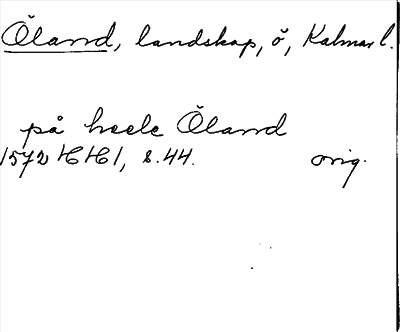 Öland, landskap, ö, Kalmar l.
på heele Öland
1572 HH1, s.44. orig.